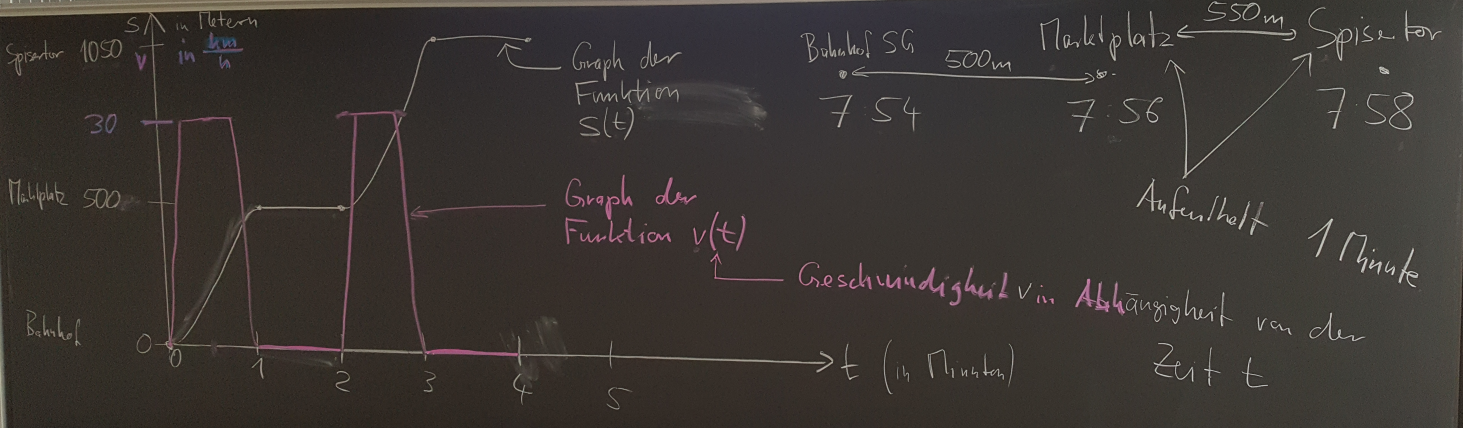 S in Metern
Spisertor 1050
v in km/h
30
Marktplatz 500
Bahnhof
0
0 1 2 3 4 5
t (in Minuten)
Graph der
Funktion
S(t)
Graph der
Funktion v(t)
Geschwindigkeit v in Abhängigkeit von der
Zeit t
Bahnhof SG
500m
Marktplatz
550m
Spisertor
7:54
7:56
7:58
Aufenthalt 1 Minute